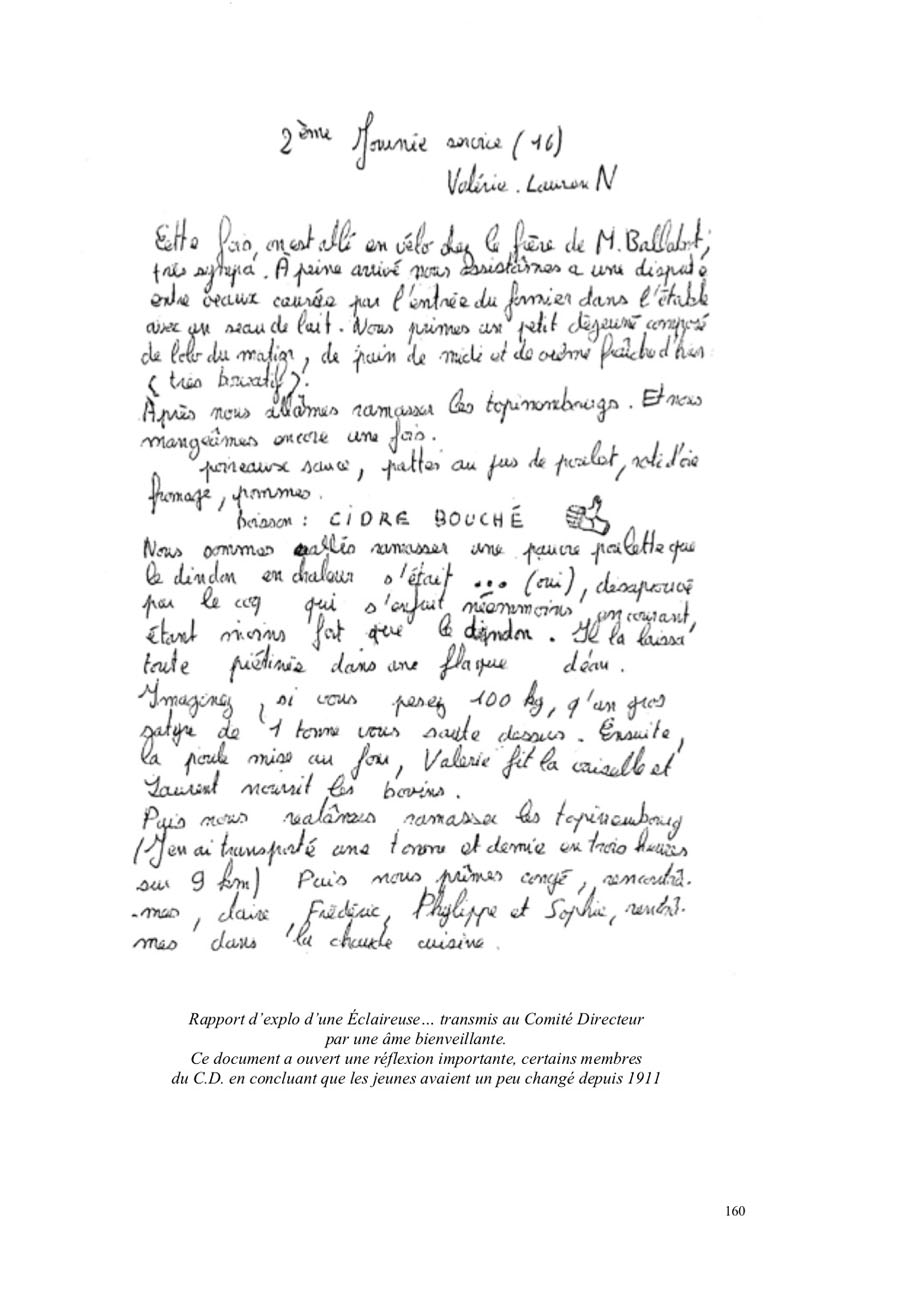 2ème Journée service (16)
Valérie. Laurent N
Cette fois, on est allé en vélo chez le frère de M. Ballabot,
très sympa. À peine arrivé nous assistâmes a une dispute
entre veaux causée par l'entrée du fermier dans l'étable
avec un seau de lait. Nous primes un petit dégeuné composé
de lolo du matin, de pain de midi et de crème fraîche d'hier
(très laxatif).
Après nous allâmes ramasser les topinombourgs. Et nous
mangeâmes encore une fois.
poireaux sauce, pattes au jus de poulet, roti d'oie
fromage, pommes.
Boisson : CIDRE BOUCHÉ
Nous sommes allés ramasser une pauvre poulette que
le dindon en chaleur s'était ... (oui), désaprouvé
par le coq qui s'enfuit néanmoins, en courant,
étant moins fort que le dindon. Il la laissa
toute piétinée dans une flaque déau.
Imaginez, si vous pesez 100 kg, q'un gros
satyre de 1 tonne vous saute dessus. Ensuite,
la poule mise au four, Valerie fit la vaiselle et
Laurent nourrit les bovins.
Puis nous realâmes ramasser les topinembourg
(J'en ai transporté une tonne et demie en trois heures
sur 9 km) Puis nous prîmes congé, rencontrâ-
-mes, claire, Frédéric, Phylippe et Sophie, rentrâ-
mes dans la chaude cuisine.
Rapport d'explo d'une Éclaireuse… transmis au Comité Directeur
par une âme bienveillante.
Ce document a ouvert une réflexion importante, certains membres
du C.D. en concluant que les jeunes avaient un peu changé depuis 1911
160